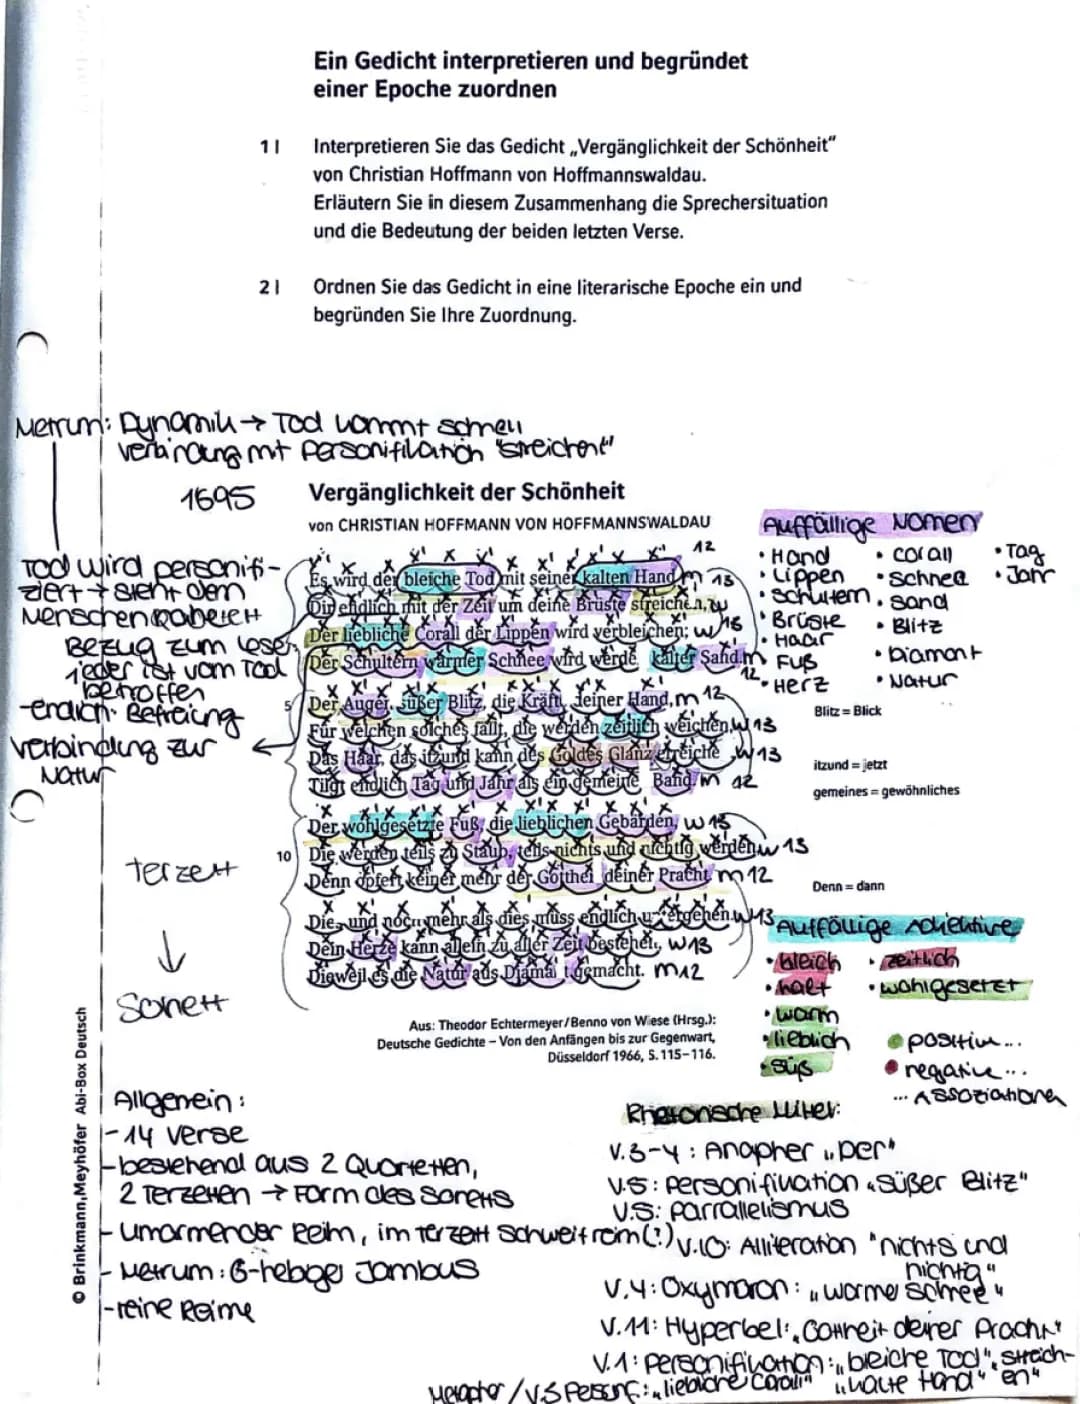 Ein Gedicht interpretieren und begründet
einer Epoche zuordnen
1 | Interpretieren Sie das Gedicht „Vergänglichkeit der Schönheit"
von Christian Hoffmann von Hoffmannswaldau.
Erläutern Sie in diesem Zusammenhang die Sprechersituation
und die Bedeutung der beiden letzten Verse.
2 | Ordnen Sie das Gedicht in eine literarische Epoche ein und
begründen Sie Ihre Zuordnung.
Metrum: Dynamik → Tod kommt schnell
Verbindung mit Personifikation "streichen"
1695
Vergänglichkeit der Schönheit
von CHRISTIAN HOFFMANN VON HOFFMANNSWALDAU
Es wird der bleiche Tod mit seiner kalten Hand m 12
Dir endlich mit der Zeit um deine Brüste streichen, w 13
Der liebliche Corall der Lippen wird verbleichen; w 13
Der Schultern warmer Schnee wird werden kalter Sand. m 12
5 Der Augen süßer Blitz, die Kräfte deiner Hand, m 12
Für welchen solches fällt, die werden zeitlich weichen, w 13
Das Haar, das itzund kann des Goldes Glanz erreichen w 13
Tilgt endlich Tag und Jahr als ein gemeines Band. m 12
Der wohlgesetzte Fuß, die lieblichen Gebärden, w 13
10 Die werden teils zu Staub, teils nichts und nichtig werden, w 13
Denn opfert keiner mehr der Gottheit deiner Pracht. m 12
Dies und noch mehr als dies muss endlich untergehen. w 13
Dein Herze kann allein zu aller Zeit bestehen, w 13
Dieweil es die Natur aus Diamant gemacht. m 12
Aus: Theodor Echtermeyer/Benno von Wiese (Hrsg.):
Deutsche Gedichte – Von den Anfängen bis zur Gegenwart,
Düsseldorf 1966, S. 115–116.
Tod wird personifi-
ziert → sieht den
Menschen
Bezug zum Leser,
jeder ist vom Tod
betroffen
-endlich: Befreiung
Verbindung zur
Natur
Terzett
↓
Sonett
Auffällige Nomen
• Hand
• Lippen
• Schultern
• Brüste
• Haar
• Fuß
• Herz
• Corall
• Schnee
• Sand
• Blitz
• Diamant
• Natur
• Tag
• Jahr
Blitz = Blick
itzund = jetzt
gemeines = gewöhnliches
Denn = dann
Auffällige Adjektive
• bleich
• kalt
• warm
• lieblich
• süß
• zeitlich
• wohlgesetzt
positive ...
negative ...
... Assoziationen
© Brinkmann, Meyhöfer Abi-Box Deutsch
Allgemein:
- 14 Verse
- bestehend aus 2 Quartetten,
2 Terzetten → Form des Sonetts
- umarmender Reim, im Terzett Schweifreim (?)
- Metrum: 6-hebiger Jambus
- reine Reime
Rhetorische Mittel:
V.3-4: Anapher „Der"
V.5: Personifikation „süßer Blitz"
V.5: Parrallelismus
V.10: Alliteration "nichts und
nichtig"
V.4: Oxymoron: „warmer Schnee"
V.11: Hyperbel: „Gottheit deiner Pracht"
V.1: Personifikation: „bleiche Tod", „streich-
en"
„kalte Hand"
Metapher / V.3 Person.: „liebliche Corall"